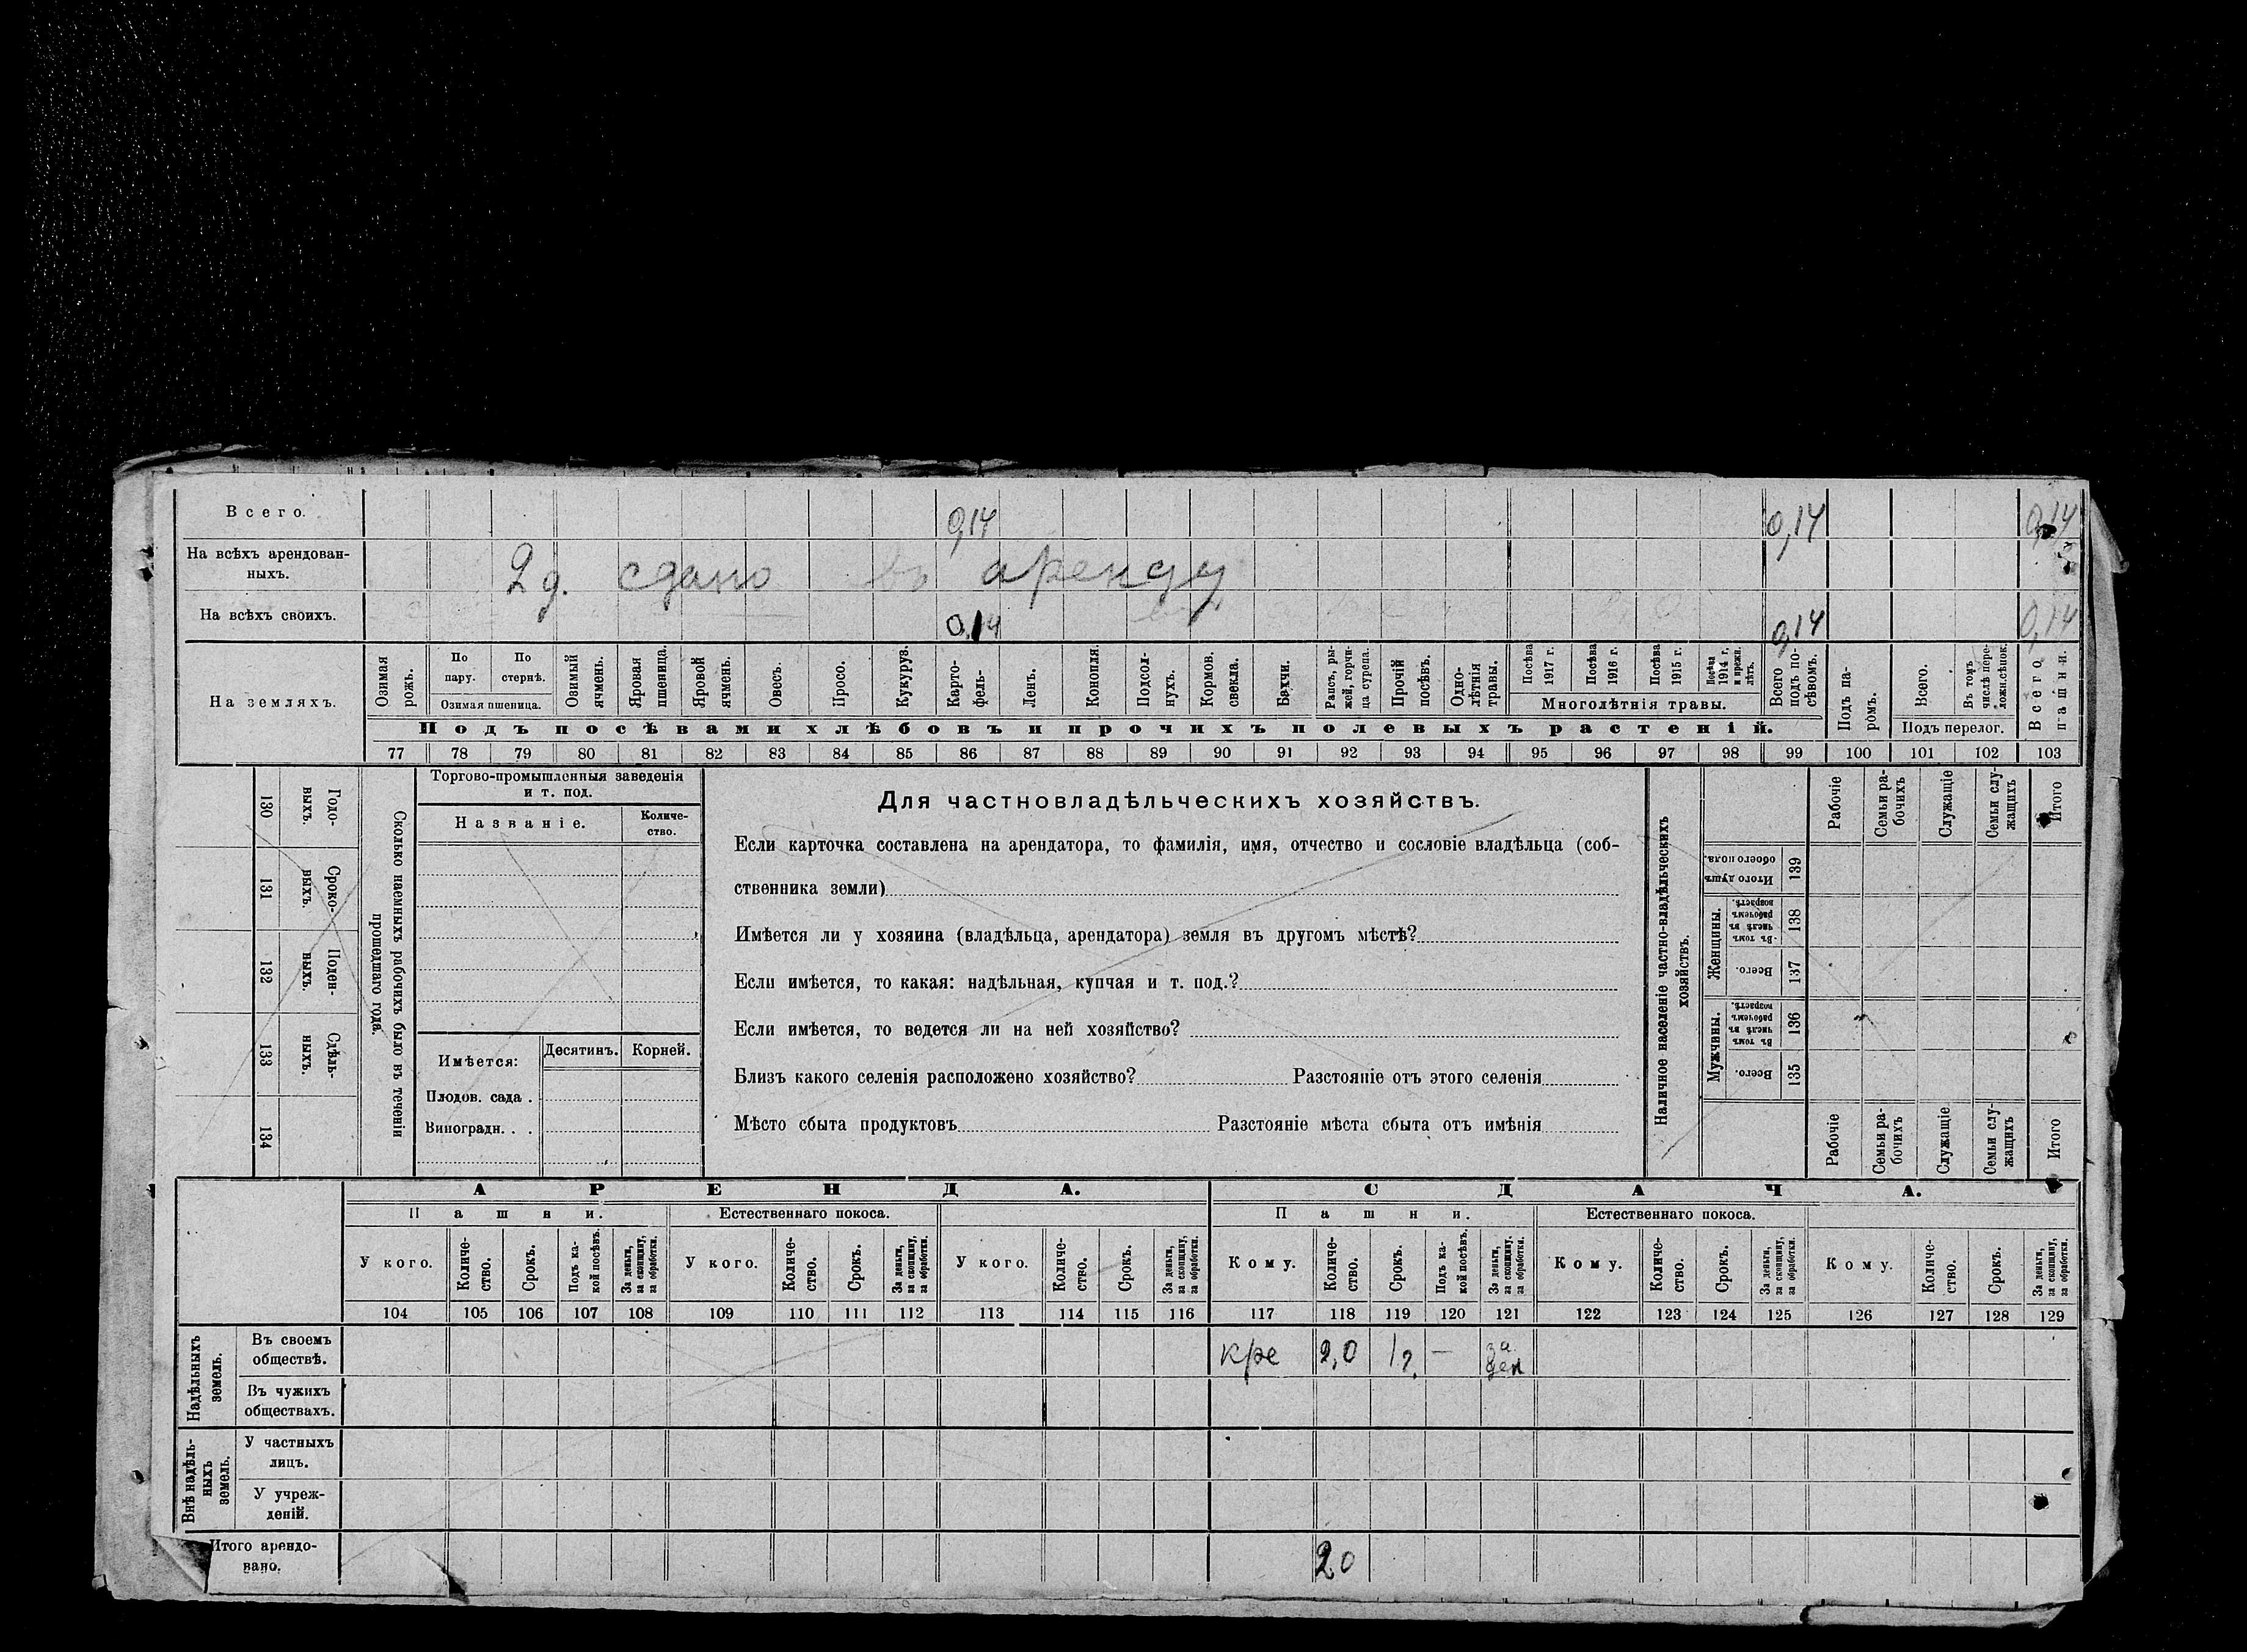 Всего. 0,14 0,14 0,14
На всѣхъ арендован-
ныхъ.
2 д. сдано въ аренду
На всѣхъ своихъ. 0,14 0,14 0,14
На земляхъ.
Озимая рожь.
По пару.
По стернѣ.
Озимая пшеница.
Озимый ячмень.
Яровая пшеница.
Яровой ячмень.
Овесъ.
Просо.
Кукуруз.
Карто-
фель-
Ленъ.
Конопля.
Подсол-
нухъ.
Кормов. свекла.
Бахчи.
Рапсъ, ры-
жей, горчи-
ца сурепа.
Прочій посѣвъ.
Одно-
лѣтнія травы.
Посѣва 1917 г.
Посѣва 1916 г.
Посѣва 1915 г.
Посѣва 1914 г. и прежн. лѣтъ.
Многолѣтнія травы.
Всего подъ по-
сѣвомъ.
Подъ па-
ромъ.
Всего.
Въ томъ числѣ пере-
ложн. сѣнок.
Подъ перелог.
Всего пашни.
Подъ посѣвами хлѣбовъ и прочихъ полевыхъ растеній.
77 78 79 80 81 82 83 84 85 86 87 88 89 90 91 92 93 94 95 96 97 98 99 100 101 102 103
130 Годо-
выхъ.
131 Сроко-
выхъ.
132 Поден-
ныхъ.
133 Сдѣль-
ныхъ.
134
Сколько наемныхъ рабочихъ было въ теченіи
прошедшаго года.
Торгово-промышленныя заведенія
и т. под.
Названіе.
Количе-
ство.
Имѣется: Десятинъ. Корней.
Плодов. сада .
Виноградн. . .
Для частновладѣльческихъ хозяйствъ.
Если карточка составлена на арендатора, то фамилія, имя, отчество и сословіе владѣльца (соб-
ственника земли)
Имѣется ли у хозяина (владѣльца, арендатора) земля въ другомъ мѣстѣ?
Если имѣется, то какая: надѣльная, купчая и т. под.?
Если имѣется, то ведется ли на ней хозяйство?
Близъ какого селенія расположено хозяйство? Разстояніе отъ этого селенія
Мѣсто сбыта продуктовъ Разстояніе мѣста сбыта отъ имѣнія
Наличное населеніе частно-владѣльческихъ
хозяйствъ.
Итого душъ обоего пола. 139
Женщины.
Въ томъ числѣ въ рабочемъ возрастѣ. 138
Всего. 137
Мужчины.
Въ томъ числѣ въ рабочемъ возрастѣ. 136
Всего. 135
Рабочіе
Семьи ра-
бочихъ
Служащіе
Семьи слу-
жащихъ
Итого
Рабочіе
Семьи ра-
бочихъ
Служащіе
Семьи слу-
жащихъ
Итого
АРЕНДА. СДАЧА.
Пашни. Естественнаго покоса. Пашни. Естественнаго покоса.
У кого.
Количе-
ство.
Срокъ.
Подъ ка-
кой посѣвъ.
За деньги,
за скопщину,
за обработки.
У кого.
Количе-
ство.
Срокъ.
За деньги,
за скопщину,
за обработки.
У кого.
Количе-
ство.
Срокъ.
За деньги,
за скопщину,
за обработки.
Кому.
Количе-
ство.
Срокъ.
Подъ ка-
кой посѣвъ.
За деньги,
за скопщину,
за обработки.
Кому.
Количе-
ство.
Срокъ.
За деньги,
за скопщину,
за обработки.
Кому.
Количе-
ство.
Срокъ.
За деньги,
за скопщину,
за обработки.
104 105 106 107 108 109 110 111 112 113 114 115 116 117 118 119 120 121 122 123 124 125 126 127 128 129
Надѣльныхъ
земель.
Въ своемъ
обществѣ.
кре 2,0 — за
ден
Въ чужихъ
обществахъ.
Внѣ надѣль-
ныхъ
земель.
У частныхъ
лицъ.
У учреж-
деній.
Итого арендо-
вано.
2,0